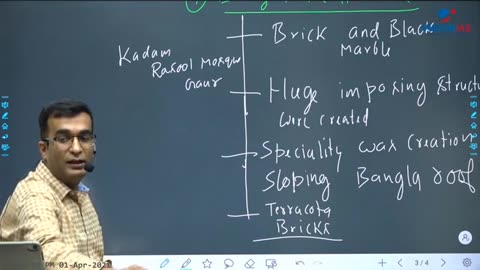 Brick and Black
Marble
Kadam
Rasool Mosque
Gaur
Huge imposing structu
were created
Speciality was creation
Sloping Bangla roof
Terracota
Bricks
PM 01-Apr-202
3/4